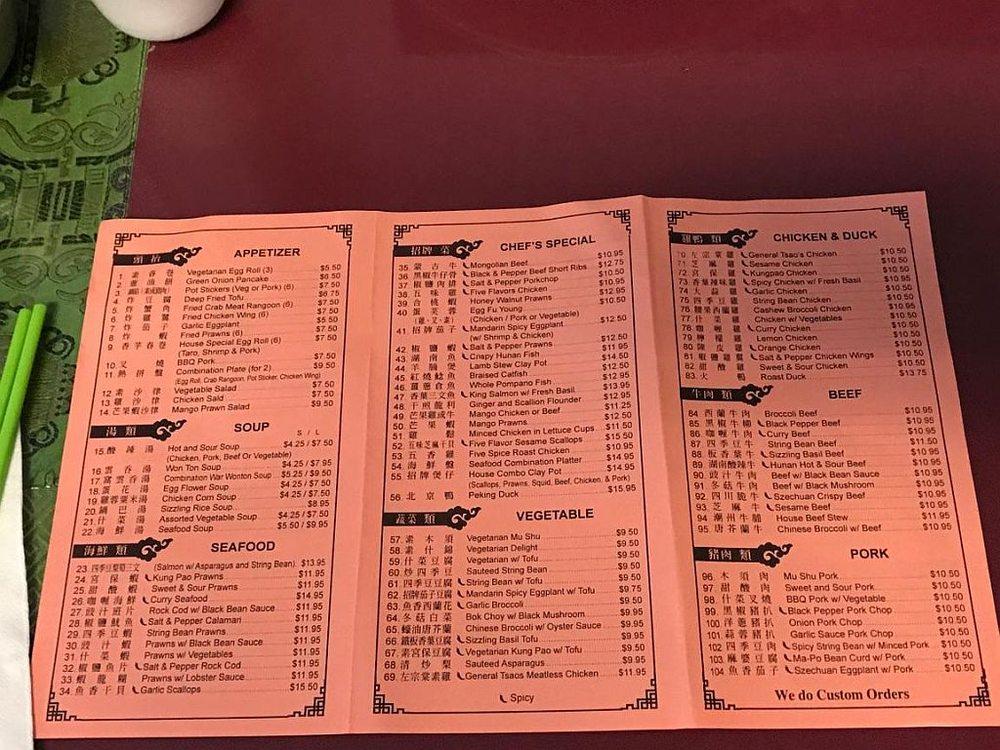 頭枱 APPETIZER
1 素春卷 Vegetarian Egg Roll (3) $5.50
2 蔥油餅 Green Onion Pancake $6.50
3 Pot Stickers (Veg or Pork) (6) $7.50
4 炸豆腐 Deep Fried Tofu $6.75
5 炸蟹角 Fried Crab Meat Rangoon (6) $7.50
6 炸雞翼 Fried Chicken Wing (6) $7.50
7 炸茄子 Garlic Eggplant $5.50
8 炸蝦 Fried Prawns (6) $7.50
9 香芋春卷 House Special Egg Roll (6) $7.50
(Taro, Shrimp & Pork)
10 叉燒 BBQ Pork $7.50
11 熱拼盤 Combination Plate (for 2) $9.50
(Egg Roll, Crab Rangoon, Pot Sticker, Chicken Wing)
12 素沙律 Vegetable Salad $7.50
13 雞沙律 Chicken Sald $7.50
14 芒果蝦沙律 Mango Prawn Salad $9.50
湯類 SOUP S / L
15 酸辣湯 Hot and Sour Soup $4.25 / $7.50
(Chicken, Pork, Beef Or Vegetable)
16 雲吞湯 Won Ton Soup $4.25 / $7.95
17 窩雲吞湯 Combination War Wonton Soup $5.25 / $9.50
18 蛋花湯 Egg Flower Soup $4.25 / $7.50
19 雞蓉粟米湯 Chicken Corn Soup $4.25 / $7.50
20 鍋巴湯 Sizzling Rice Soup $8.95
21 什菜湯 Assorted Vegetable Soup $4.25 / $7.50
22 海鮮湯 Seafood Soup $5.50 / $9.95
海鮮類 SEAFOOD
23 四季豆葡萄三文 (Salmon w/ Asparagus and String Bean) $13.95
24 宮保蝦 Kung Pao Prawns $11.95
25 甜酸蝦 Sweet & Sour Prawns $11.95
26 咖喱海鮮 Curry Seafood $14.95
27 豉汁班片 Rock Cod w/ Black Bean Sauce $11.95
28 椒鹽魷魚 Salt & Pepper Calamari $11.95
29 四季豆蝦 String Bean Prawns $11.95
30 豉汁蝦 Prawns w/ Black Bean Sauce $11.95
31 什菜蝦 Prawns w/ Vegetables $11.95
32 椒鹽魚片 Salt & Pepper Rock Cod $11.95
33 蝦龍糊 Prawns w/ Lobster Sauce $11.95
34 魚香干貝 Garlic Scallops $15.50
招牌菜 CHEF'S SPECIAL
35 蒙古牛 Mongolian Beef $10.95
36 黑椒牛仔骨 Black & Pepper Beef Short Ribs $12.75
37 椒鹽肉排 Salt & Pepper Porkchop $10.95
38 五味雞 Five Flavors Chicken $12.95
39 合桃蝦 Honey Walnut Prawns $10.50
40 蛋芙蓉 Egg Fu Young
(Chicken / Pork or Vegetable) $12.50
41 招牌茄子 Mandarin Spicy Eggplant
(w/ Shrimp & Chicken) $12.50
42 椒鹽蝦 Salt & Pepper Prawns $11.95
43 湖南魚 Crispy Hunan Fish $14.50
44 羊腩煲 Lamb Stew Clay Pot $12.50
45 紅燒鯰魚 Braised Catfish $12.95
46 薑蔥倉魚 Whole Pompano Fish $12.95
47 香葉三文魚 King Salmon w/ Fresh Basil $13.95
48 干煎龍利 Ginger and Scallion Flounder $12.95
49 芒果雞或牛 Mango Chicken or Beef $11.25
50 芒果蝦 Mango Prawns $12.50
51 雞鬆 Minced Chicken in Lettuce Cups $11.50
52 五味芝麻干貝 Five Flavor Sesame Scallops $15.50
53 五香雞 Five Spice Roast Chicken $10.95
54 海鮮盤 Seafood Combination Platter $14.95
55 招牌煲仔 House Combo Clay Pot $14.95
(Scallops, Prawns, Squid, Beef, Chicken, & Pork)
56 北京鴨 Peking Duck $15.95
蔬菜類 VEGETABLE
57 素木須 Vegetarian Mu Shu $9.50
58 素什錦 Vegetarian Delight $9.50
59 什菜豆腐 Vegetarian w/ Tofu $9.50
60 炒四季豆 Sauteed String Bean $9.50
61 四季豆豆腐 String Bean w/ Tofu $9.50
62 招牌茄子豆腐 Mandarin Spicy Eggplant w/ Tofu $9.75
63 魚香西蘭花 Garlic Broccoli $9.50
64 冬菇白菜 Bok Choy w/ Black Mushroom $9.95
65 蠔油唐芥蘭 Chinese Broccoli w/ Oyster Sauce $9.95
66 鐵板香葉豆腐 Sizzling Basil Tofu $9.50
67 素宮保豆腐 Vegetarian Kung Pao w/ Tofu $9.50
68 清炒 Sauteed Asparagus $9.50
69 左宗棠素雞 General Tsaos Meatless Chicken $11.95
Spicy
雞鴨類 CHICKEN & DUCK
70 左宗棠雞 General Tsao's Chicken $10.50
71 芝麻雞 Sesame Chicken $10.50
72 宮保雞 Kungpao Chicken $10.50
73 香葉辣味雞 Spicy Chicken w/ Fresh Basil $10.95
74 大蒜雞 Garlic Chicken $10.50
75 四季豆雞 String Bean Chicken $10.50
76 腰果西蘭雞 Cashew Broccoli Chicken $10.95
77 什菜雞 Chicken w/ Vegetables $10.50
78 咖喱雞 Curry Chicken $10.50
79 檸檬雞 Lemon Chicken $10.50
80 陳皮雞 Orange Chicken $10.50
81 椒鹽雞翼 Salt & Pepper Chicken Wings $10.50
82 甜酸雞 Sweet & Sour Chicken $10.50
83 火鴨 Roast Duck $13.75
牛肉類 BEEF
84 西蘭牛肉 Broccoli Beef $10.95
85 黑椒牛柳 Black Pepper Beef $10.95
86 咖喱牛肉 Curry Beef $10.95
87 四季豆牛 String Bean Beef $11.50
88 板香葉牛 Sizzling Basil Beef $10.95
89 湖南酸辣牛 Hunan Hot & Sour Beef $10.95
90 豉汁牛肉 Beef w/ Black Bean Sauce $10.95
91 冬菇牛肉 Beef w/ Black Mushroom $10.95
92 四川脆牛 Szechuan Crispy Beef $10.95
93 芝麻牛 Sesame Beef $10.95
94 潮州牛腩 House Beef Stew $11.95
95 唐芥蘭牛 Chinese Broccoli w/ Beef $10.95
豬肉類 PORK
96 木須肉 Mu Shu Pork $10.50
97 甜酸肉 Sweet and Sour Pork $10.50
98 什菜叉燒 BBQ Pork w/ Vegetable $10.50
99 黑椒豬扒 Black Pepper Pork Chop $10.50
100 洋蔥豬扒 Onion Pork Chop $10.50
101 蒜蓉豬扒 Garlic Sauce Pork Chop $10.50
102 四季豆肉 Spicy String Bean w/ Minced Pork $10.50
103 麻婆豆腐 Ma-Po Bean Curd w/ Pork $10.50
104 魚香茄子 Szechuan Eggplant w/ Pork $10.50
We do Custom Orders